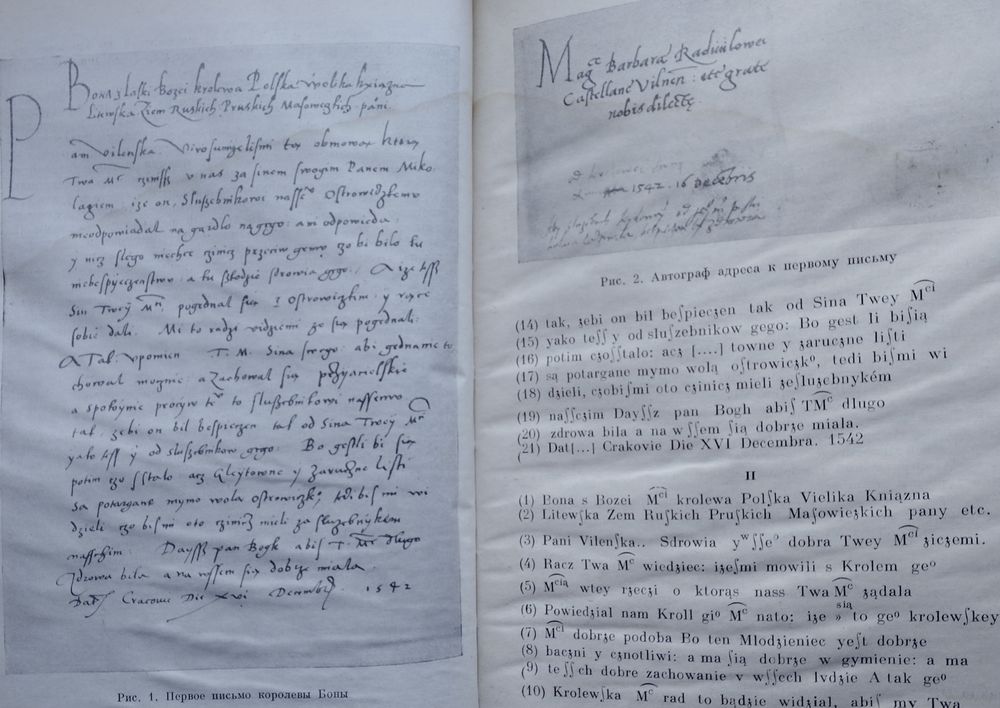 Bona z laski Bozei krolewa Polska Vyelika kxiązna
Litewska Ziem Ruskich Pruskich Masowezkich pani.
Pani Vilenska. Virosumzelismi tez obmowox ktorą
Twa Mc czinissz v nas za sinem swogim Panem Miko
lagiem, ize on, Sluszebnikowi nasse° Ostrowidzkemo
nieodpowiadal na gardlo nagego: ani odpowieda
y niz slego niechce cziniz przeciw gemu zo bi bilo ku
niebespyeczenstwo, a ku szkodzie sdrowia gego. A ize tess
Sin Twey Mci, pogednal się z Ostrowizkim: y ręce
sobie dali. Mi to radzi vidziemi ze się pogednali:
A Tak vpomien T. M. Sina swego: abi gednanie to
chowal moznie: a Zachowal się przyacielskie
a spokoynie przeciw te° to sluszebnikowi nassemo
tak, zebi on bil bespieczen tak od Sina Twey Mci
yako tess y od sluszebnikow gego. Bo gestli bi się
potim czo sstalo acz Gleytowne y Zaruczne listi
są potargane mymo wola Ostrowizk°, tedi bismi wi
dzieli czobismi oto cziniz mieli za sluzebnykem
nassczim: Daysz pan Bogk abis T. Mc dlugo
Zdrowa bila a na wssem się dobrze miala.
Dat Cracovie Die xvi Decembr. 1542
Рис. 1. Первое письмо королевы Боны
Mag ce Barbara Radivilowei
Castellane Vilnen: etc grate
nobis dilecte.
1542. 16 decebris
Рис. 2. Автограф адреса к первому письму
(14) tak, ʒebi on bil beſpieczen tak od Sina Twey Mci
(15) yako teſſ y od sluſzebnikow gego: Bo gest li biſią
(16) potim cʒoſſtalo: acʒ [....] towne y ʒaruczne liſti
(17) są potargane mymo wolą oſtrowiczk⁰, tedi biſmi wi
(18) dʒieli, cʒobiſmi oto cʒinicʒ mieli ʒeſluʒebnykém
(19) naſſcʒim Dayſſz pan Bogh abiſ TMc dlugo
(20) zdrowa bila a na w ſſem ſią dobrʒe miala.
(21) Dat[...] Crakovie Die XVI Decembra. 1542
II
(1) Bona s Bozei Mci krolewa Polſka Vielika Kniązna
(2) Litewſka Zem Ruſkich Pruſkich Maſowieʒkich pany etc.
(3) Pani Vilenſka.. Sdrowia ywſſe⁰ dobra Twey Mci ʒicʒemi.
(4) Racz Twa Mc wiedʒiec: iʒeſmi mowili s Krolem ge⁰
(5) Mcią wtey rʒecʒi o ktorąs nass Twa Mc ʒądala
(6) Powiedʒial nam Kroll gi⁰ Mc nato: iʒe sią » to ge⁰ krolewſkey
(7) Mci dobrʒe podoba Bo ten Mlodʒieniec yeſt dobrʒe
(8) bacʒni y cʒnotliwi: a ma ſią dobrʒe w gymienie: a ma
(9) te ſſch dobre zachowanie v wſſech lvdʒie A tak ge⁰
(10) Krolewſka Mc rad to bądʒie widʒial, abiſ my Twa